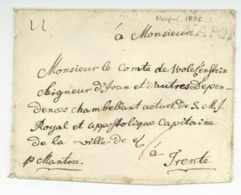 à Monsieur
Monsieur le Comte de Wolckenstein
Seigneur d'Ivan et autres Depen-
dences chambellant actuel de S. M. I.
Royal et appostolique Capitaine
de la Ville de
à
p Mantou Trente